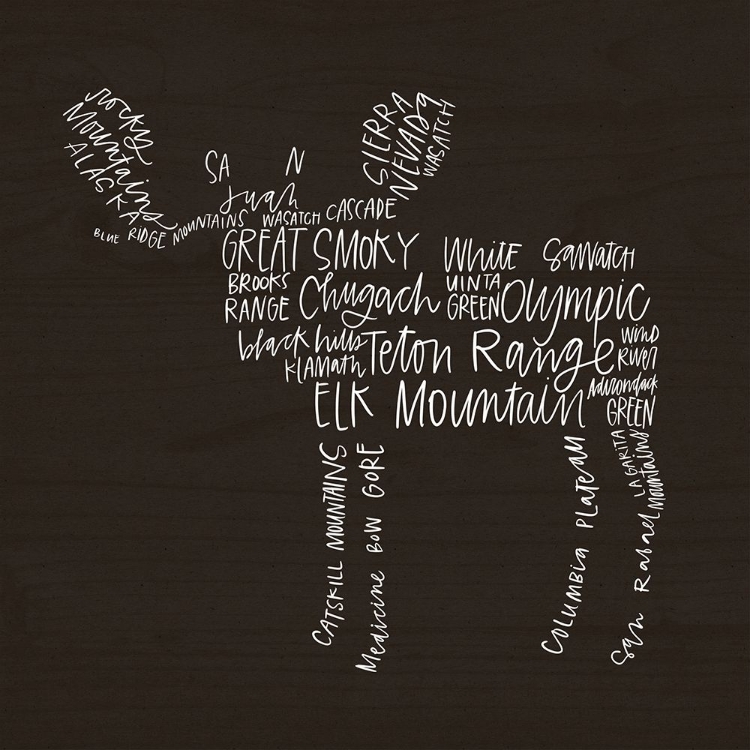 rocky
Mountains
ALASKA
SIERRA
NEVADA
WASATCH
SAN
Juan
BLUE RIDGE MOUNTAINS
WASATCH CASCADE
GREAT SMOKY
White
SAWATCH
BROOKS
RANGE
Chugach
UINTA
GREEN
Olympic
black hills
KLAMATH
Teton Range
WIND
RIVER
ELK Mountain
Adirondack
GREEN
CATSKILL MOUNTAINS
Medicine BOW GORE
COLUMBIA PLATEAU
LA GARITA
Mountains
San Rafael